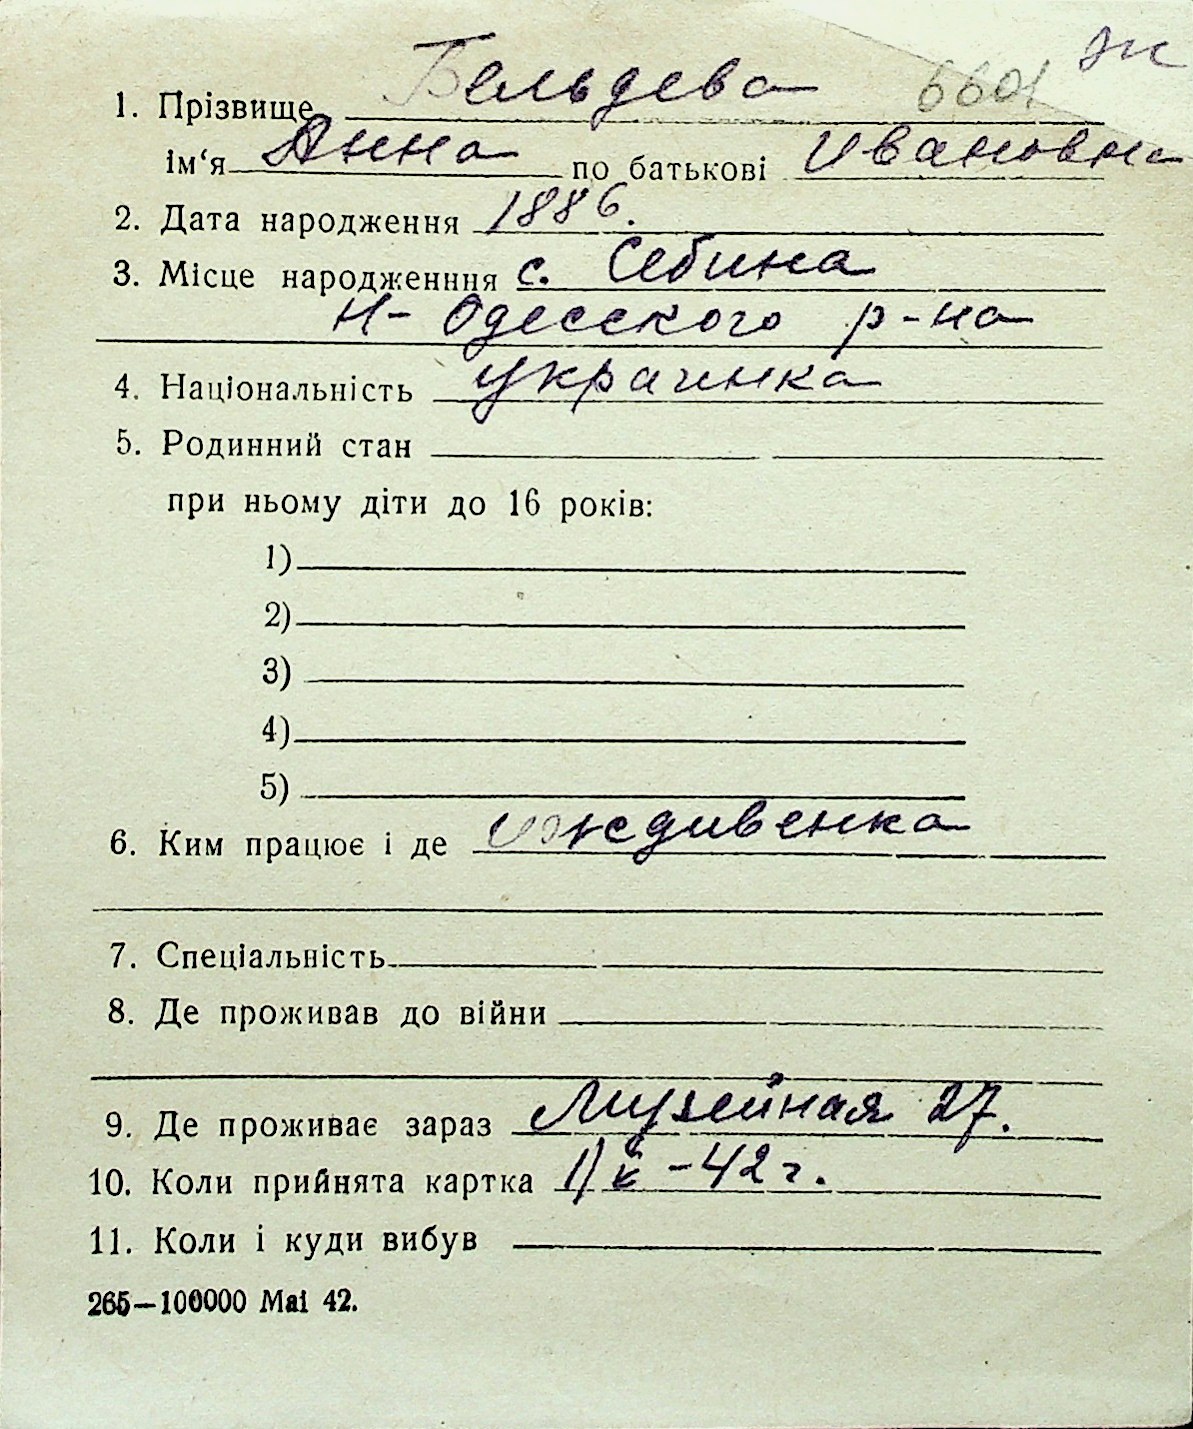 ж
1. Прізвище Бельдева 6601
ім‘я Анна по батькові Ивановна
2. Дата народження 1886.
3. Місце народженння с. Себина
Н-Одесского р-на
4. Національність украинка
5. Родинний стан
при ньому діти до 16 років:
1)
2)
3)
4)
5)
6. Ким працює і де иждивенка
7. Спеціальність
8. Де проживав до війни
9. Де проживає зараз Музейная 27.
10. Коли прийнята картка -42 г.
11. Коли і куди вибув
265—100000 Mai 42.